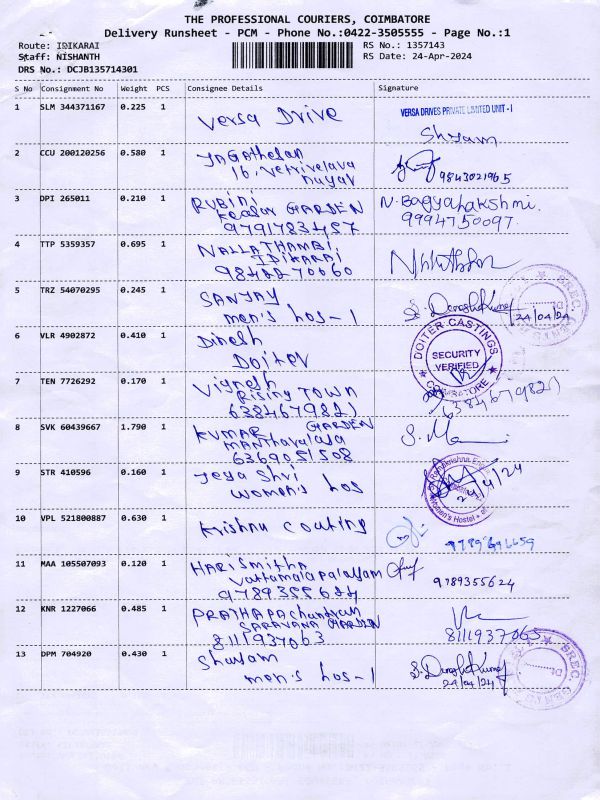 THE PROFESSIONAL COURIERS, COIMBATORE
Delivery Runsheet - PCM - Phone No.:0422-3505555 - Page No.:1
Route: IDIKARAI
RS No.: 1357143
Staff: NISHANTH
RS Date: 24-Apr-2024
DRS No.: DCJB135714301
S No Consignment No Weight PCS Consignee Details Signature
1 SLM 344371167 0.225 1 Versa Drive
VERSA DRIVES PRIVATE LIMITED UNIT - I
Shyam
2 CCU 200120256 0.580 1 Jagathesan
16, Vetrivelava
nayar
9843021965
3 DPI 265011 0.210 1 RUBINI
GARDEN
9791783457
N. Bagyalakshmi.
9994750097.
4 TTP 5359357 0.695 1 NALLATHAMBI
IDIKARAI
9842270060
5 TRZ 54070295 0.245 1 SANJAY
men's hos-1
24/04/24
SREC
6 VLR 4902872 0.410 1 Dinesh
Doiter
DOITER CASTINGS
SECURITY
VERIFIED
COIMBATORE
7 TEN 7726292 0.170 1 Vignesh
Rising TOWN
6384679827
6384679827
8 SVK 60439667 1.790 1 KUMAR GARDEN
6369051508
9 STR 410596 0.160 1 Jeya Shri
women's hos
Women's Hostel
10 VPL 521800887 0.630 1 Krishna coating
11 MAA 105507093 0.120 1 HARISmitha
Vattamalapalayam
9789355624
9789355624
12 KNR 1227066 0.485 1 PRATHAPAchandran
SARAVANA GARDEN
8111937063
8111937063
13 DPM 704920 0.430 1 Shayam
men's hos-1
24/04/24
SREC